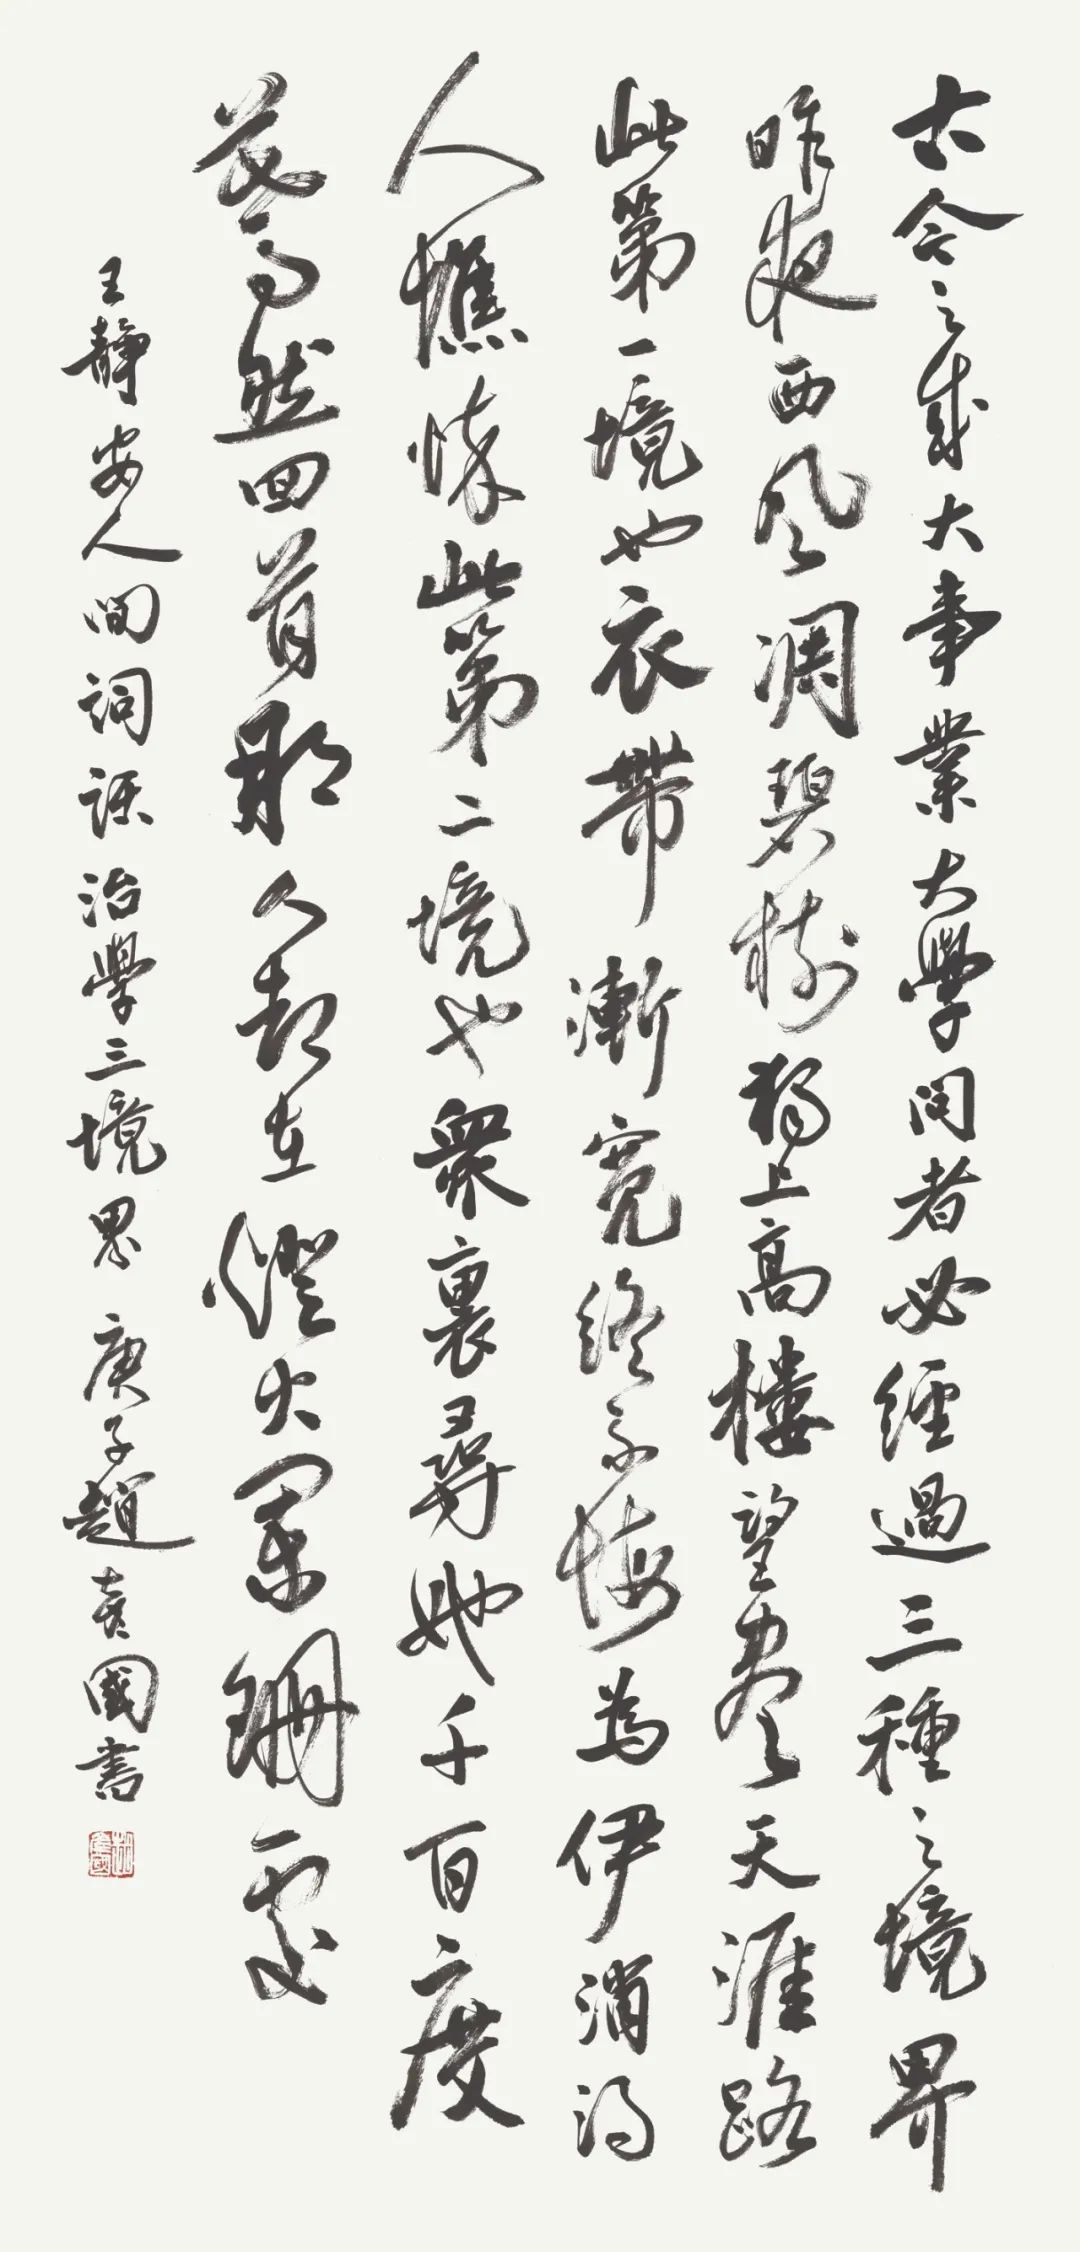 古今之成大事業大學问者必經過三種之境界
昨夜西风凋碧樹獨上高樓望盡天涯路
此第一境也衣帶漸寬終不悔為伊消得
人憔悴此第二境也衆裏尋她千百度
驀然回首那人却在燈火闌珊處
王静安人间詞話治學三境界 庚子趙彦國書